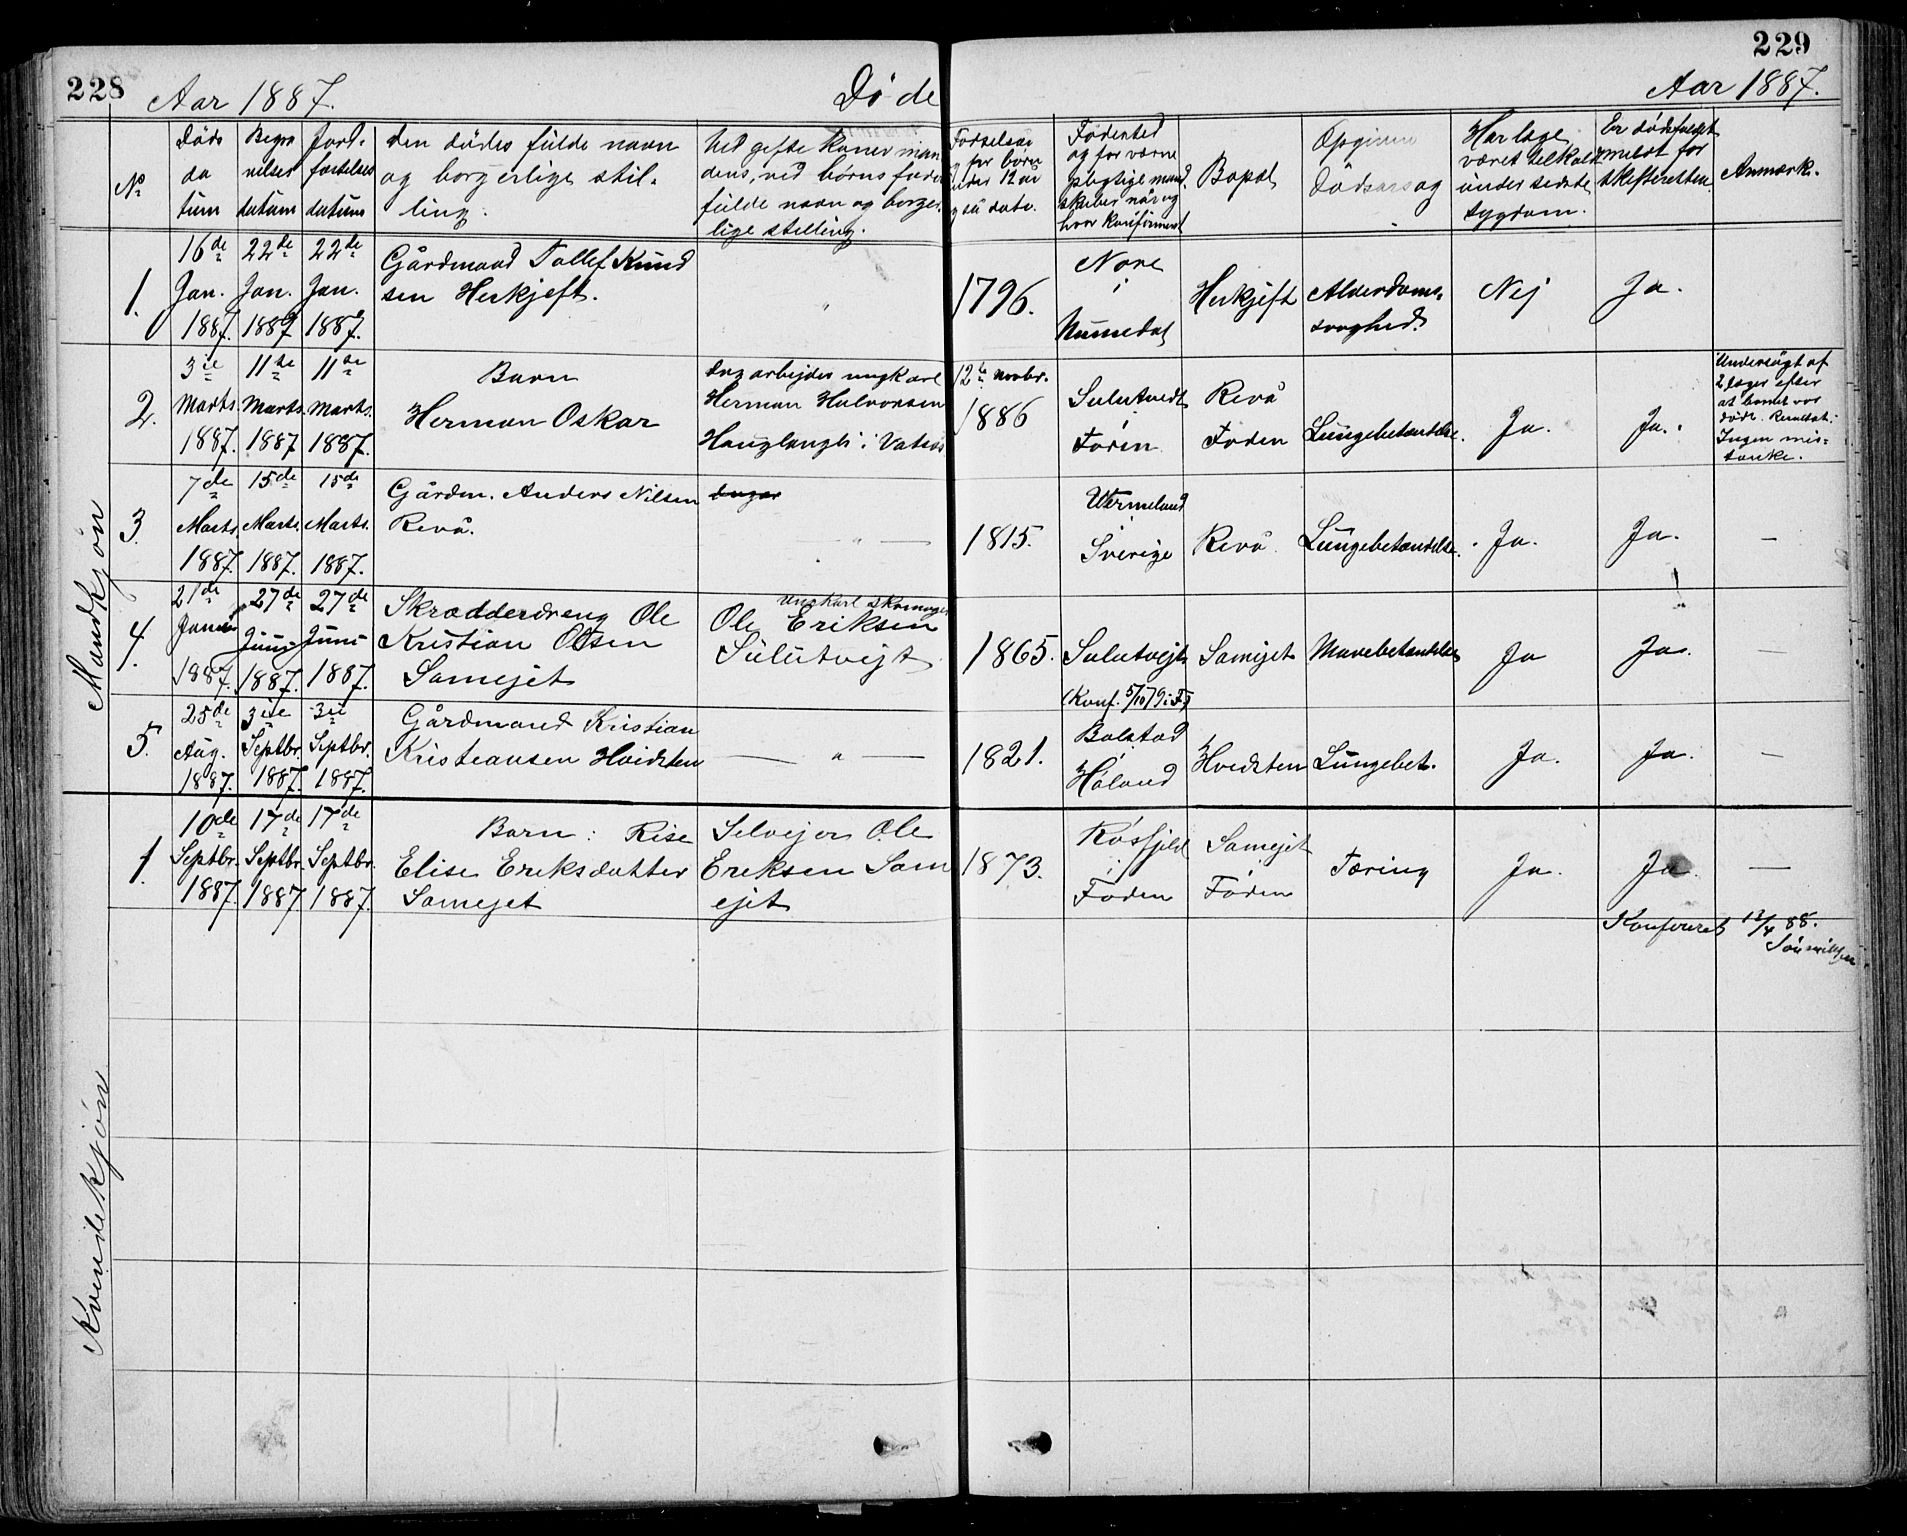 228
Aar 1887.
Døde
229
Aar 1887.
No
Døds da tum
Begra velses datum
Jord- fæstelses datum
Den dødes fulde navn og borgerlige stil- ling.
Ved gifte koner man dens, ved børns fader fulde navn og borger lige stilling.
Fødselsaar og for børn under 12 år også dato.
Fødested og for værne pligtige mand skaber når og hvor konfirmeret
Bopæl
Opgiven Dødsarsag
Har læge været tilkaldt under sidste sygdom.
Er dødsfaldet meldt for skifteretten.
Anmærk.
Mandkjøn
1.
16de Jan. 1887.
22de Jan. 1887
22de Jan. 1887.
Gårdmand Tollef Knud sen Herkjeft.
"
1796.
Nore i Numedal
Herkjeft
Alderdoms- svaghed.
Nej
Ja.
2.
3ie Marts. 1887.
11te Marts. 1887
11te Marts. 1887.
Barn Herman Oskar
Dag arbejder ungkarl Herman Halvorsen Hauglangli i Vatvis
12te novbr. 1886
Sulutvedt i Foden
Revå Foden
Lungebetændelse.
Ja.
Ja.
Undersøgt af 2 læger efter at barnet var dødt. Resultat: Ingen mis- tanke.
3.
7de Marts. 1887.
15de Marts. 1887.
15de Marts. 1887.
Gårdm. Anders Nilsen Revå.
— " —
1815.
Wermeland i Sverige
Revå
Lungebetændelse.
Ja.
Ja.
—
4.
21de Juni 1887.
27de Juni 1887.
27de Juni 1887.
Skrædderdreng Ole Kristian Olsen Samejet
ungkarl skomager Ole Eriksen Sulutvejt
1865.
Sulutvejt (Konf. 5/10 79 i F)
Samejet
Mavebetændelse
Ja
Ja.
5.
25de Aug. 1887.
3die Septbr. 1887.
3die Septbr. 1887.
Gårdmand Kristian Kristiansen Hvidsten
— " —
1821.
Bolstad i Høland
Hvidsten
Lungebet.
Ja.
Ja.
—
Kvindekjøn
1.
10de Septbr. 1887.
17de Septbr. 1887
17de Septbr. 1887.
Barn: Rise Elise Eriksdatter Samejet
Selvejer Ole Eriksen Sam ejet
1873.
Røsfjeld i Foden
Samejet Føden
Tæring
Ja.
Ja.
—
Konfereret 13/4 88.